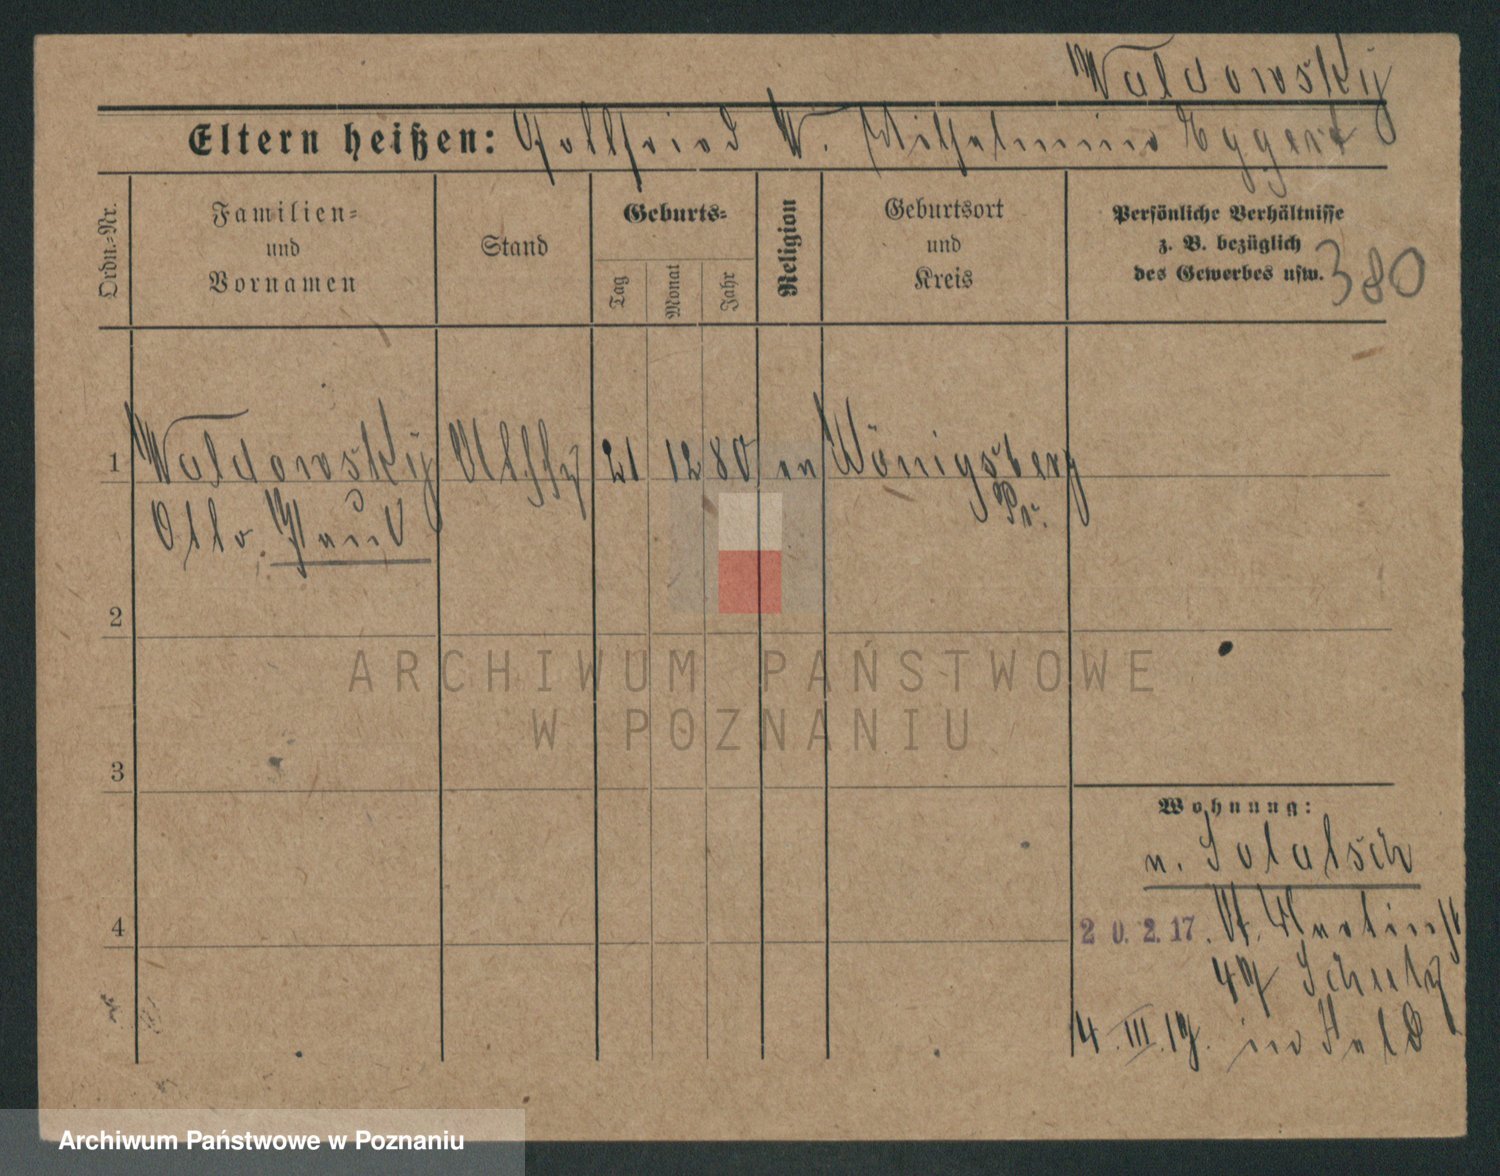 Waldowsky
Eltern heißen: Gottfried u. Wilhelmine Eggert
Ordn.-Nr.
Familien-
und
Vornamen
Stand
Geburts-
Tag
Monat
Jahr
Religion
Geburtsort
und
Kreis
Persönliche Verhältnisse
z. B. bezüglich
des Gewerbes usw.
380
1 Waldowsky 21 12 80 ev Königsberg
Otto Paul Pr.
2
3
4
ARCHIWUM PAŃSTWOWE
W POZNANIU
Wohnung:
n. Solatsch
20.2.17. St. Martinstr
47 Scheetz
4.III.17. ins Feld
Archiwum Państwowe w Poznaniu